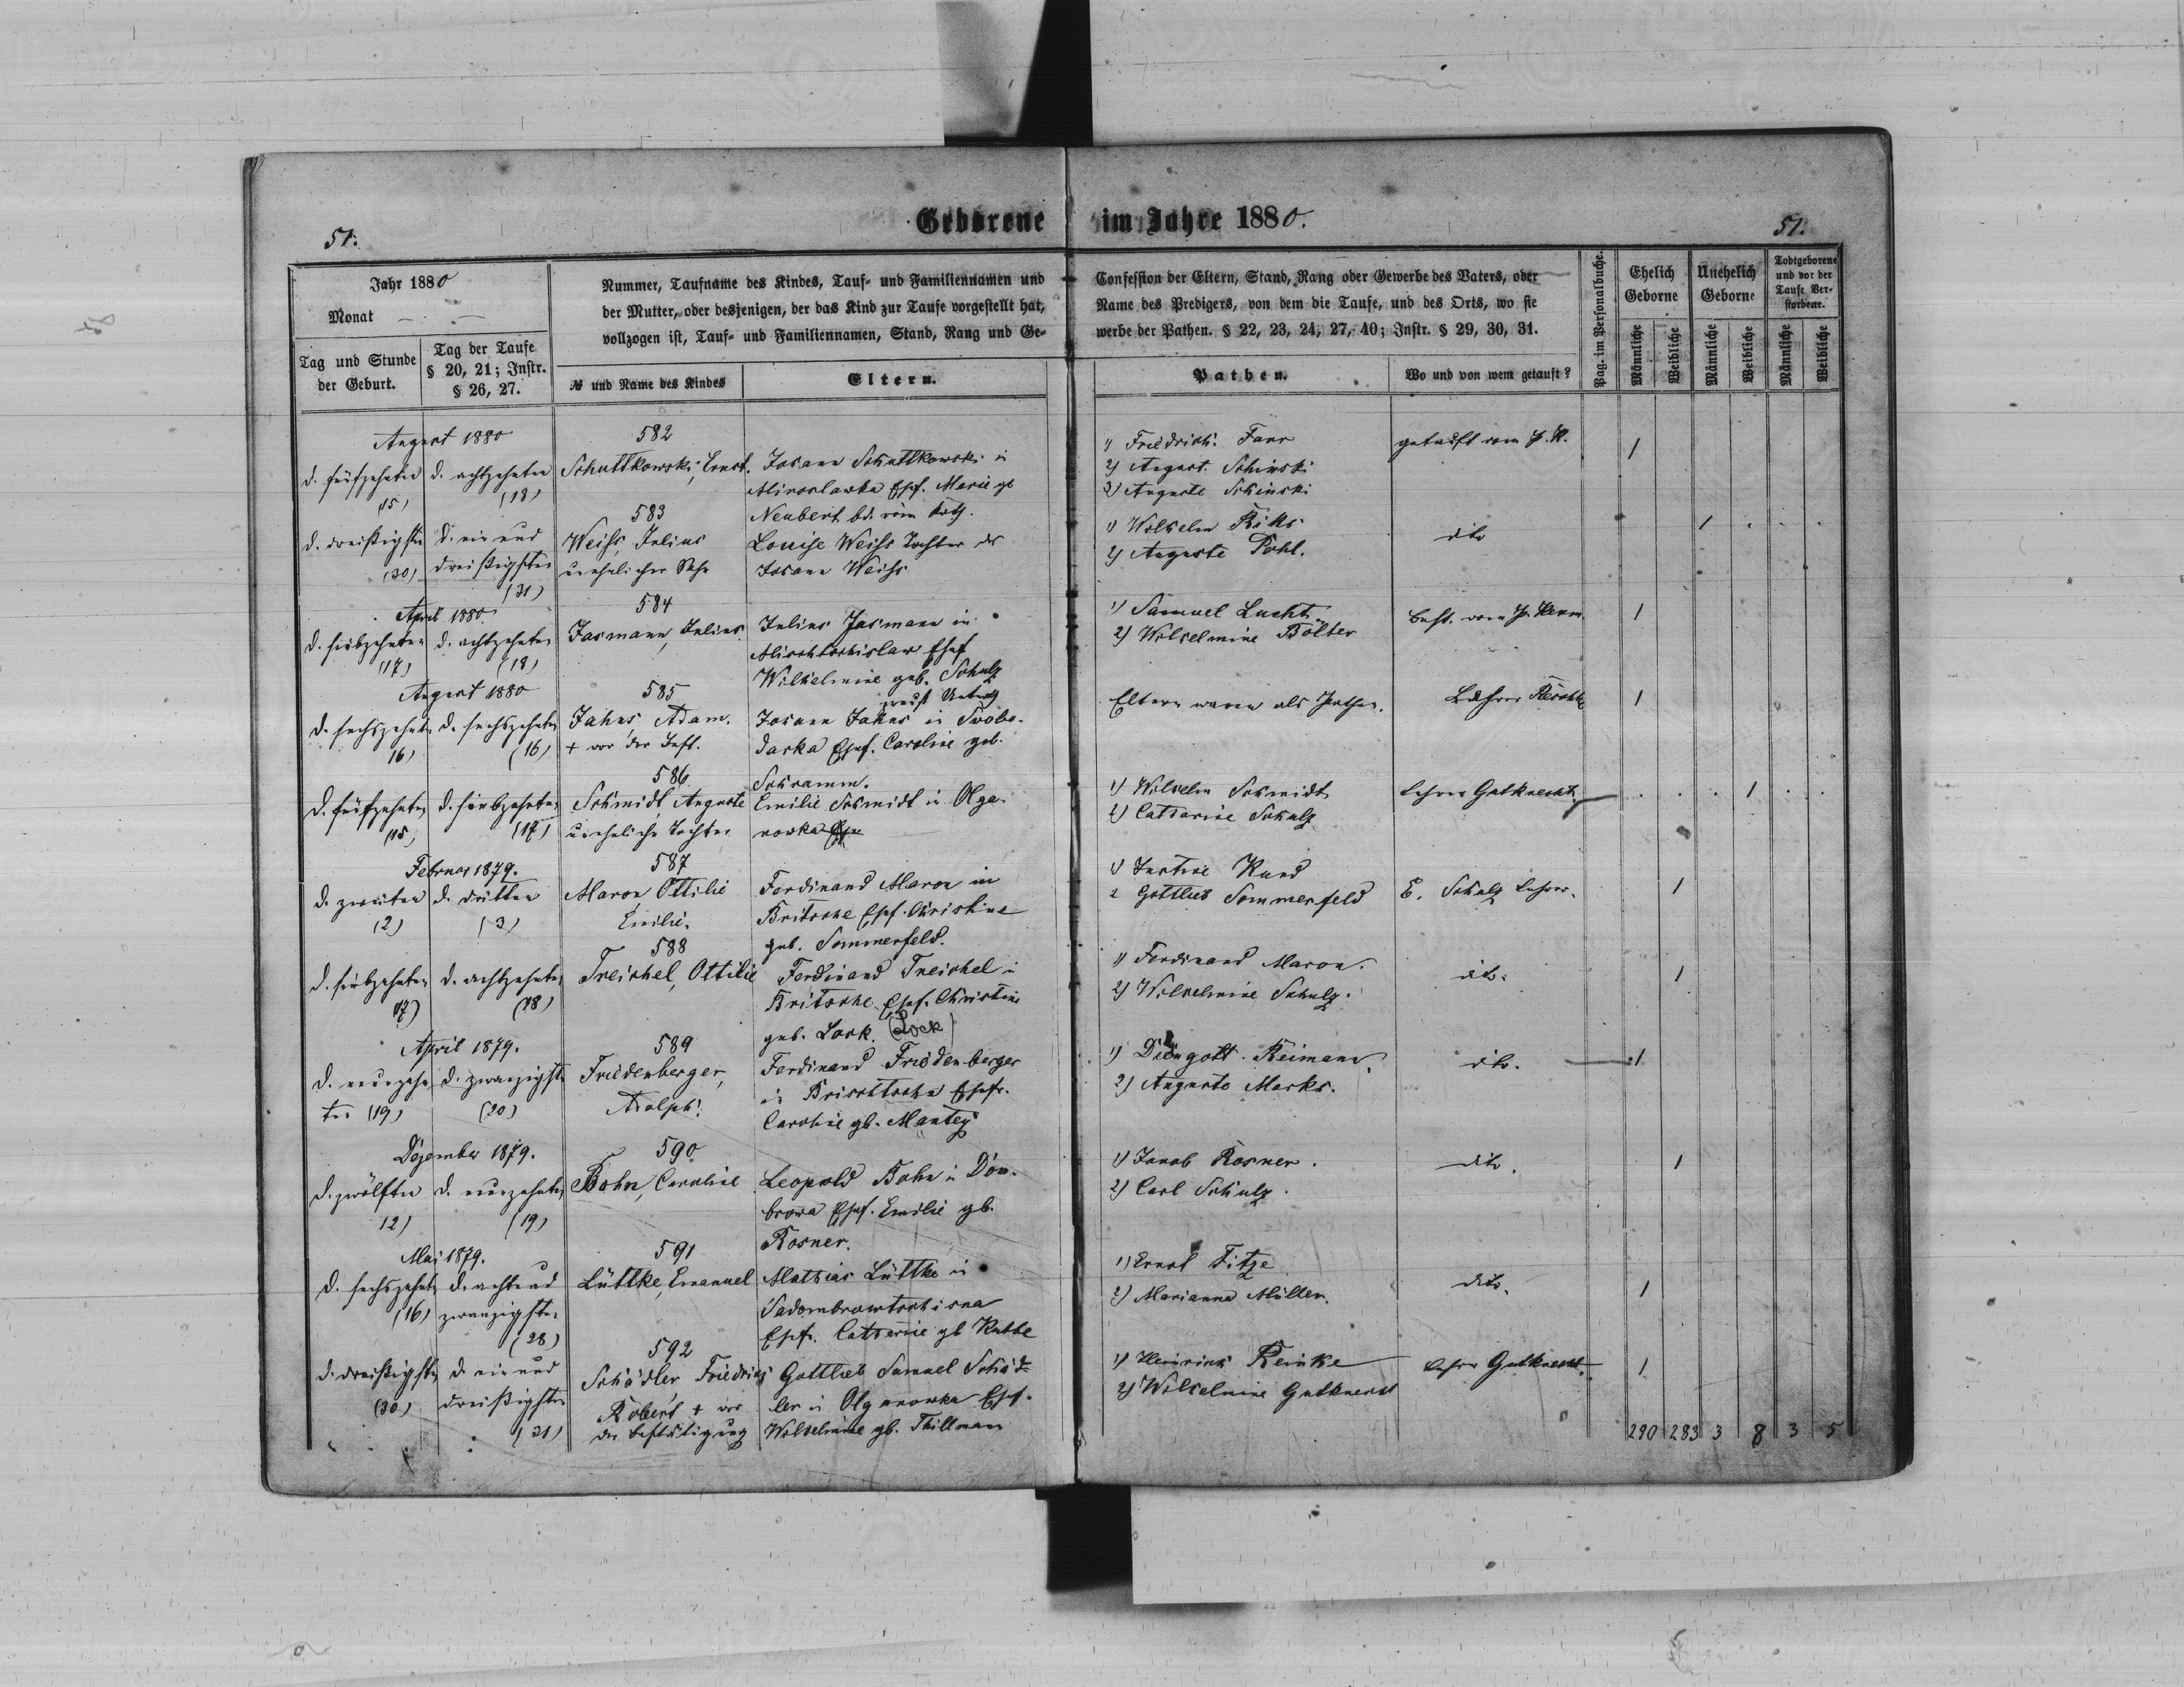 51.
Geborene im Jahre 1880.
51.
Jahr 1880
Monat
Tag und Stunde
der Geburt.
Tag der Taufe
§ 20, 21; Instr.
§ 26, 27.
Nummer, Taufname des Kindes, Tauf- und Familiennamen und
der Mutter, oder desjenigen, der das Kind zur Taufe vorgestellt hat,
vollzogen ist, Tauf- und Familiennamen, Stand, Rang und Ge-
№ und Name des Kindes
Eltern.
Confession der Eltern, Stand, Rang oder Gewerbe des Vaters, oder
Name des Predigers, von dem die Taufe, und des Orts, wo sie
werbe der Pathen. § 22, 23, 24, 27, 40; Instr. § 29, 30, 31.
Pathen.
Wo und von wem getauft?
Pag. im Personalbuche.
Ehelich
Geborne
Unehelich
Geborne
Todtgeborene
und vor der
Taufe Ver-
storbene.
Männliche
Weibliche
Männliche
Weibliche
Männliche
Weibliche
August 1880
d. fünfzehnten
15)
d. achtzehnten
(18)
582
Schuttkowski, Ernst.
Johann Schuttkowski in
Miroslawka Ehef. Marie gb
Neubert
1) Friedrich
2) August Schinski
3) Auguste Schinski
getauft vom
1
d. dreißigsten
(30)
d. ein und
dreißigsten
(31)
583
Weiss, Julius
unehelicher Sohn
Louise Weiss Tochter des
Johann Weiss
1) Wilhelm
2) Auguste Pohl.
dito
1
April 1880
d. siebzehnten
(17)
d. achtzehnten
(18)
584
Jasmann, Julius
Julius Jasmann in
Ehef
Wilhelmine geb. Schulz
1) Samuel Lucht
2) Wilhelmine Bölter
Best. vom
1
August 1880
d. sechszehnten
16)
d. sechszehnten
(16)
585
Jahns Adam.
+ vor der Best.
Johann Jahns in Swobo-
darka Ehef. Caroline geb.
Schramm.
Eltern waren als Pathen.
Lehrer
1
d. fünfzehnten
15)
d. siebzehnten
(17)
586
Schmidt, Auguste
uneheliche Tochter
Emilie Schmidt in Olga-
nowka
1) Wilhelm Schmidt
2) Catharine Schulz
Lehrer Gutknecht.
1
Februar 1879.
d. zweiten
(2)
d. dritten
(3)
587
Maron Ottilie
Emilie.
Ferdinand Maron in
Britsche Ehef. Christine
geb. Sommerfeld.
1) Justine Kund
2 Gottlieb Sommerfeld
E. Schulz Lehrer.
1
d. siebzehnten
17)
d. achtzehnten
(18)
588
Treichel, Ottilie
Ferdinand Treichel in
Britsche Ehef. Christine
geb. Lock (Lock)
1) Ferdinand Maron.
2) Wilhelmine Schulz.
dito.
1
April 1879.
d. neunzehn
ten (19)
d. zwanzigsten
(20)
589
Friedenberger,
Adolph.
Ferdinand Friedenberger
in Ehefr.
Caroline gb. Mantey
1) Reimann.
2) Auguste Marks.
dito.
1
Dezember 1879.
d. zwölften
12)
d. neunzehnten
(19)
590
Bohn, Caroline
Leopold Bohn in Dom-
browa Ehef. Emilie gb.
Rosner.
1) Jacob Rosner.
2) Carl Schulz.
dito.
1
Mai 1879.
d. sechszehnten
(16)
d. acht und
zwanzigsten
(28)
591
Lüttke, Emanuel
Mathias Lüttke in
Ehefr. Catharine gb
1) Ernst Fitze
2) Marianna Müller.
dito.
1
d. dreißigsten
(30)
d. ein und
dreißigsten
(31)
592
Schädler Friedrich
Robert + vor
der Bestätigung
Gottlieb Samuel Schäd-
ler in Olganowka Ehef.
Wilhelmine gb. Thillmann
1) Heinrich Reinke
2) Wilhelmine Gutknecht
Lehrer Gutknecht.
1
290 283 3 8 3 5